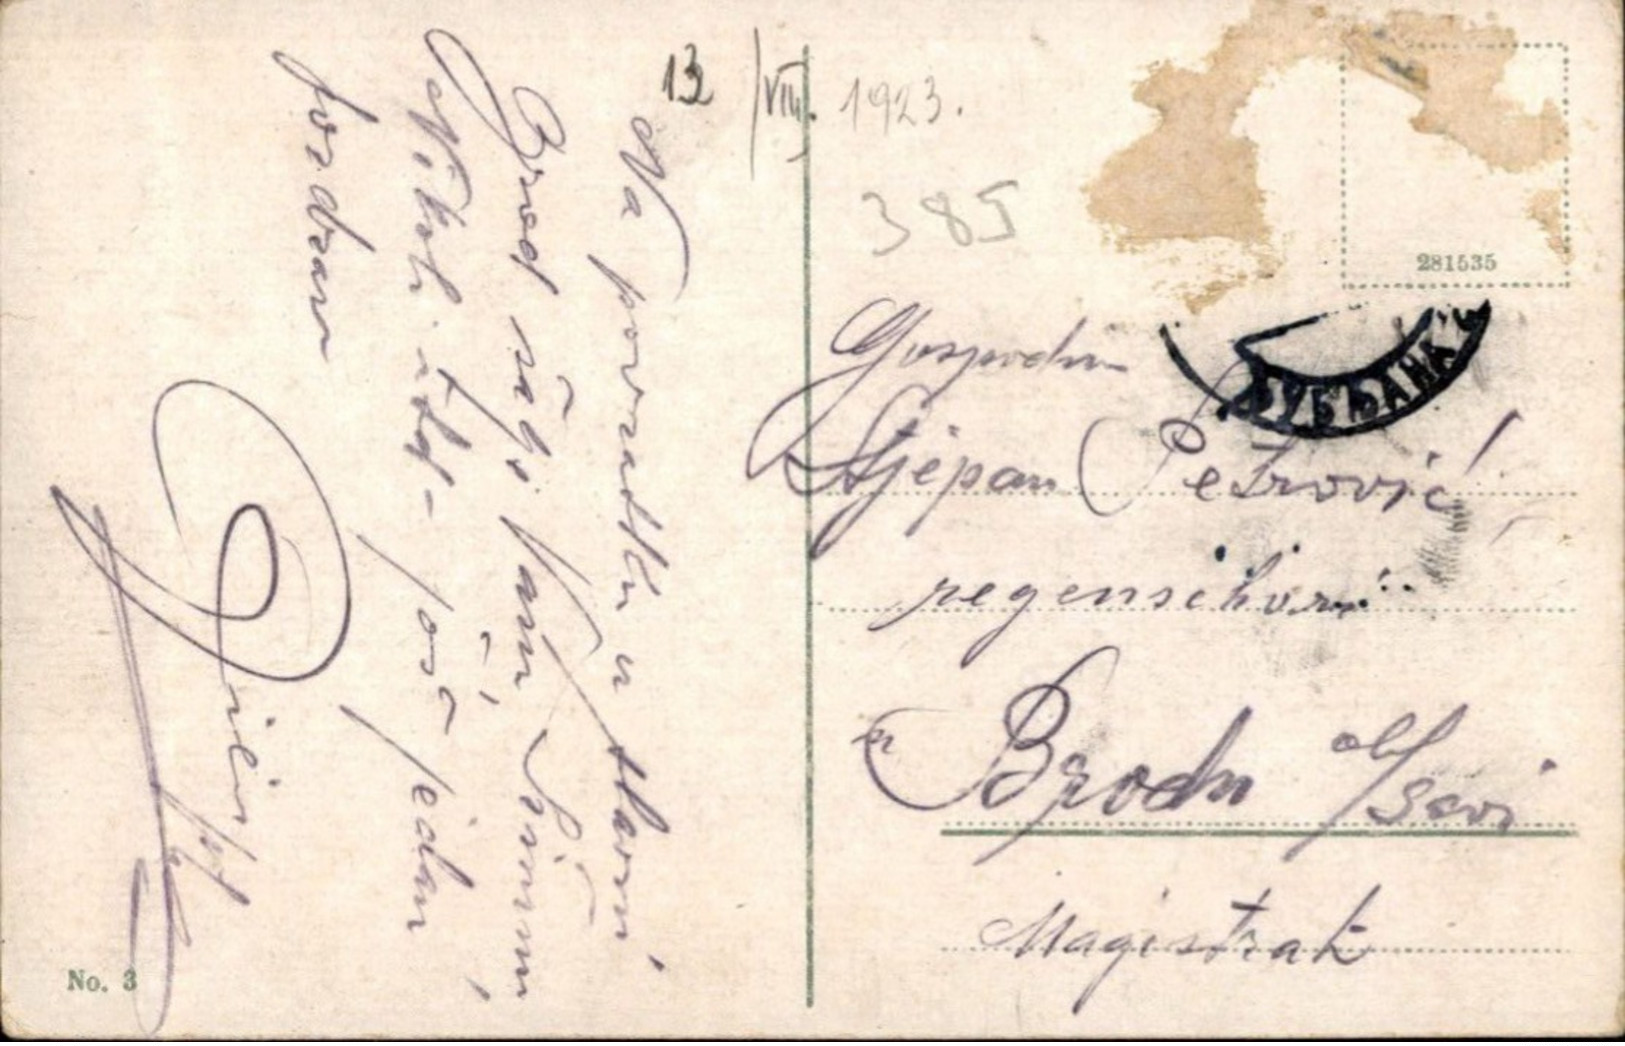 13/VIII. 1923.
385
281535
ЉУБЉАНА
Na povratku u slavni
Brod šalje Vam,
Nikoli itd - još jedan
pozdrav
Gospodin
Stjepan Petrović
regenschori
u Brodu n/Savi
Magistrat
No. 3